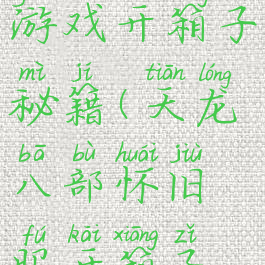 游戏开箱子
mì jí tiān lóng
秘籍(天龙
bā bù huái jiù
八部怀旧
fú kāi xiāng zǐ
服开箱子